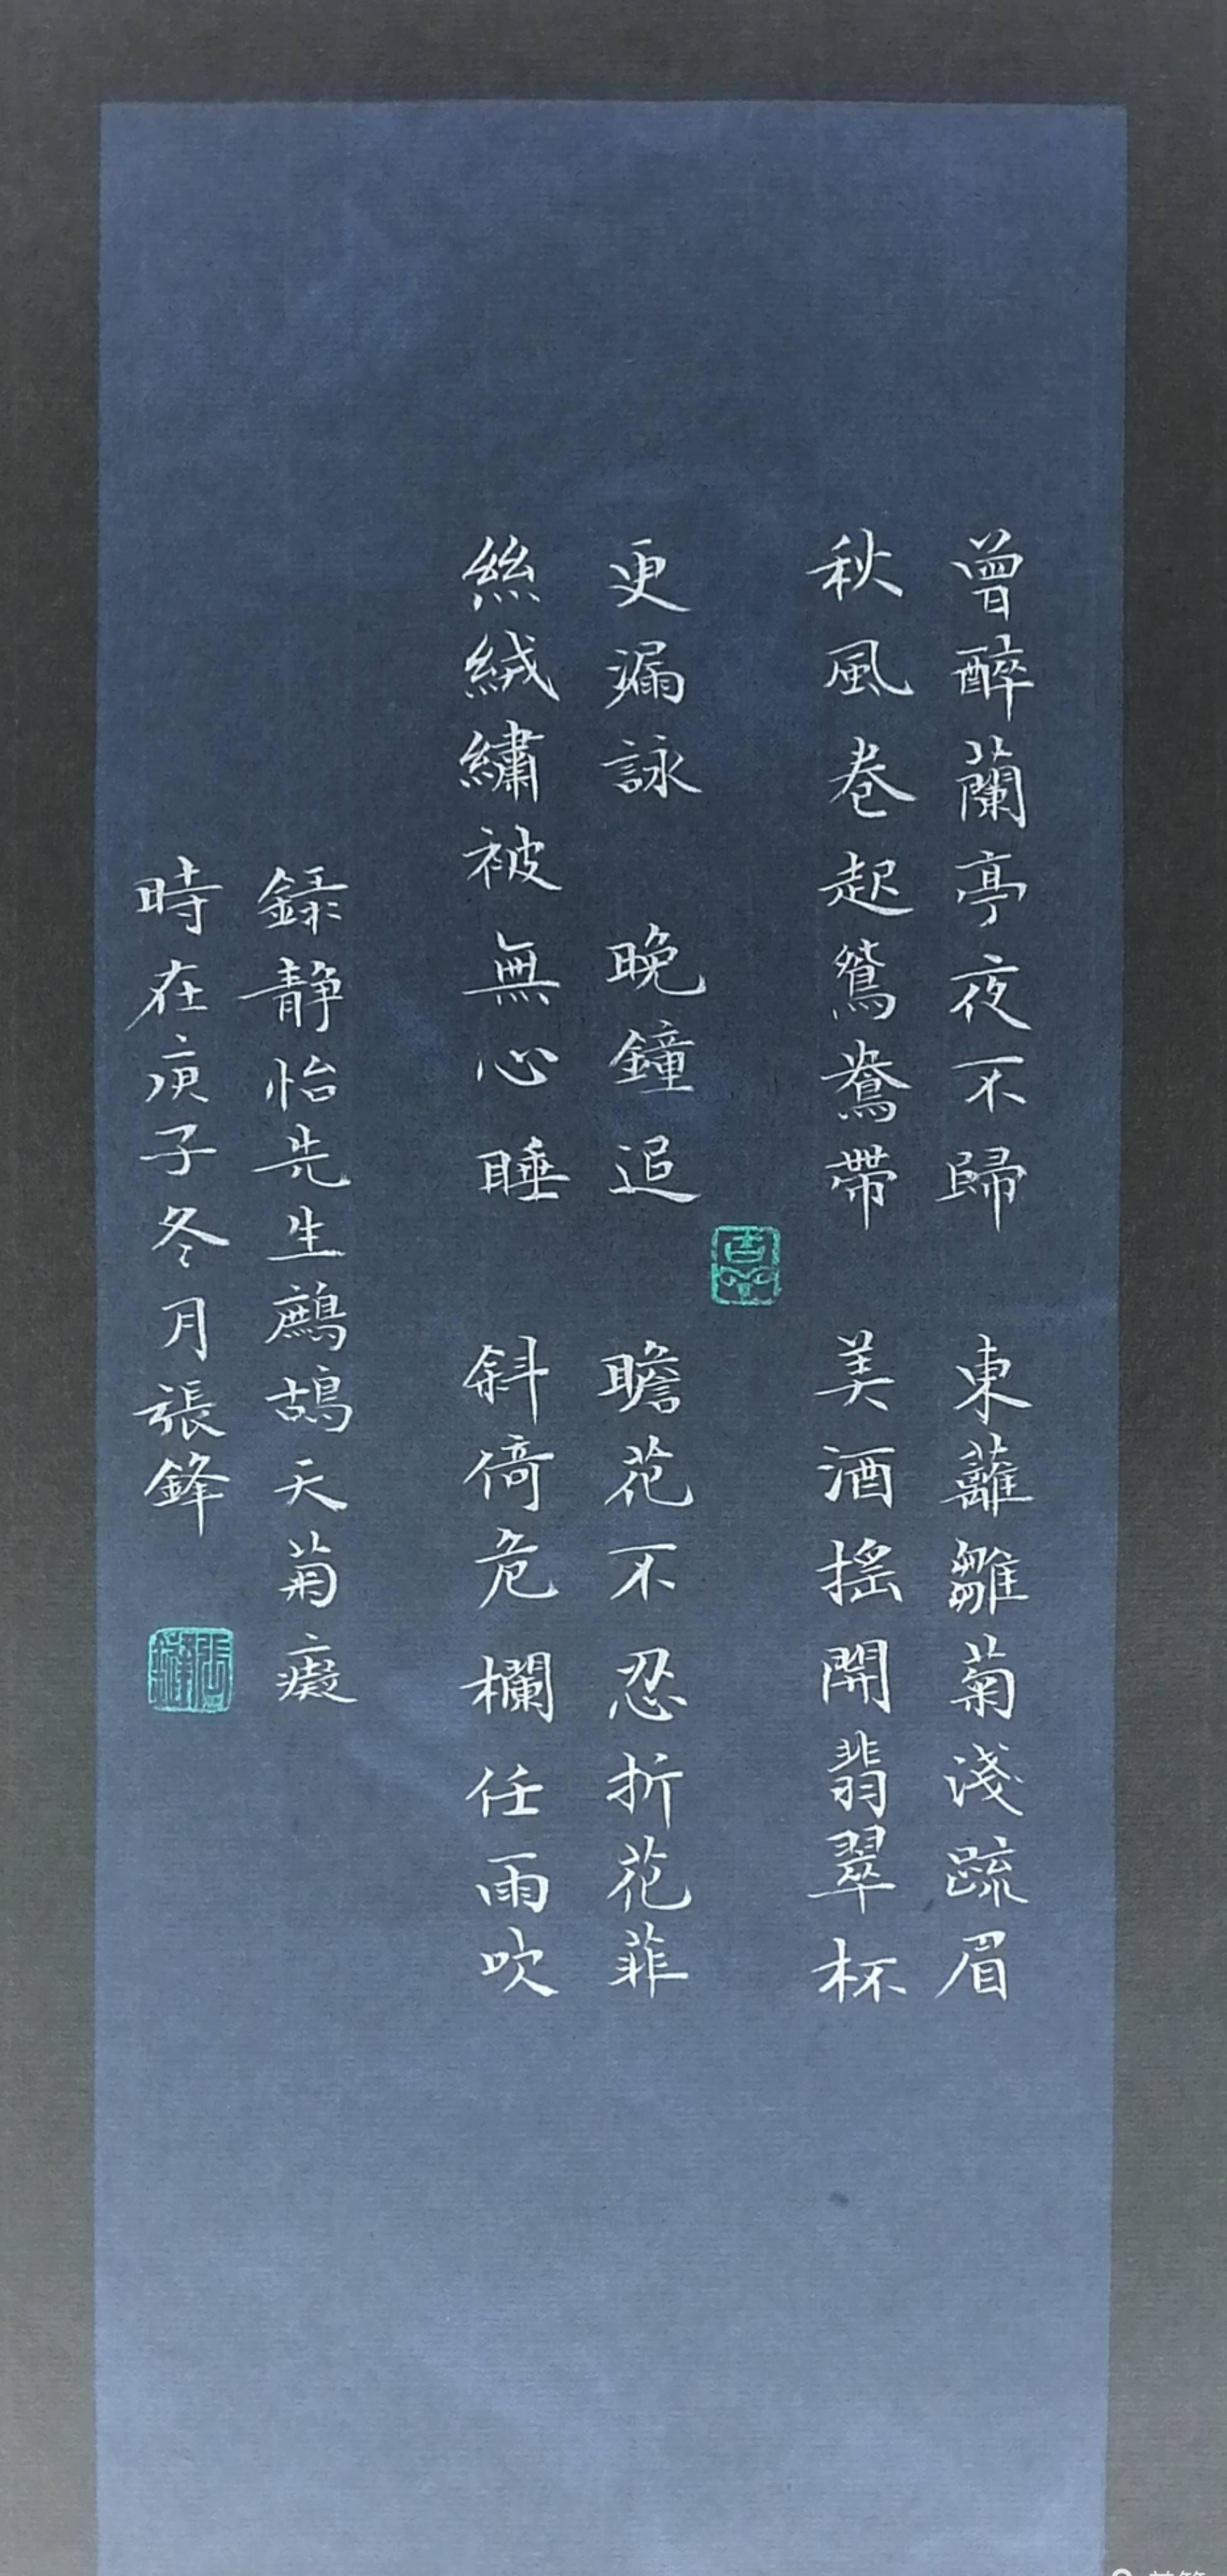 曾醉蘭亭夜不歸 東蘺雛菊淺疏眉
秋風卷起鴛鴦帶 美酒搖開翡翠杯
更漏詠 晚鐘追 瞻花不忍折花菲
絲絨繡被無心睡 斜倚危欄任雨吹
録静怡先生鷓鴣天菊癡
時在庚子冬月張鋒
張鋒